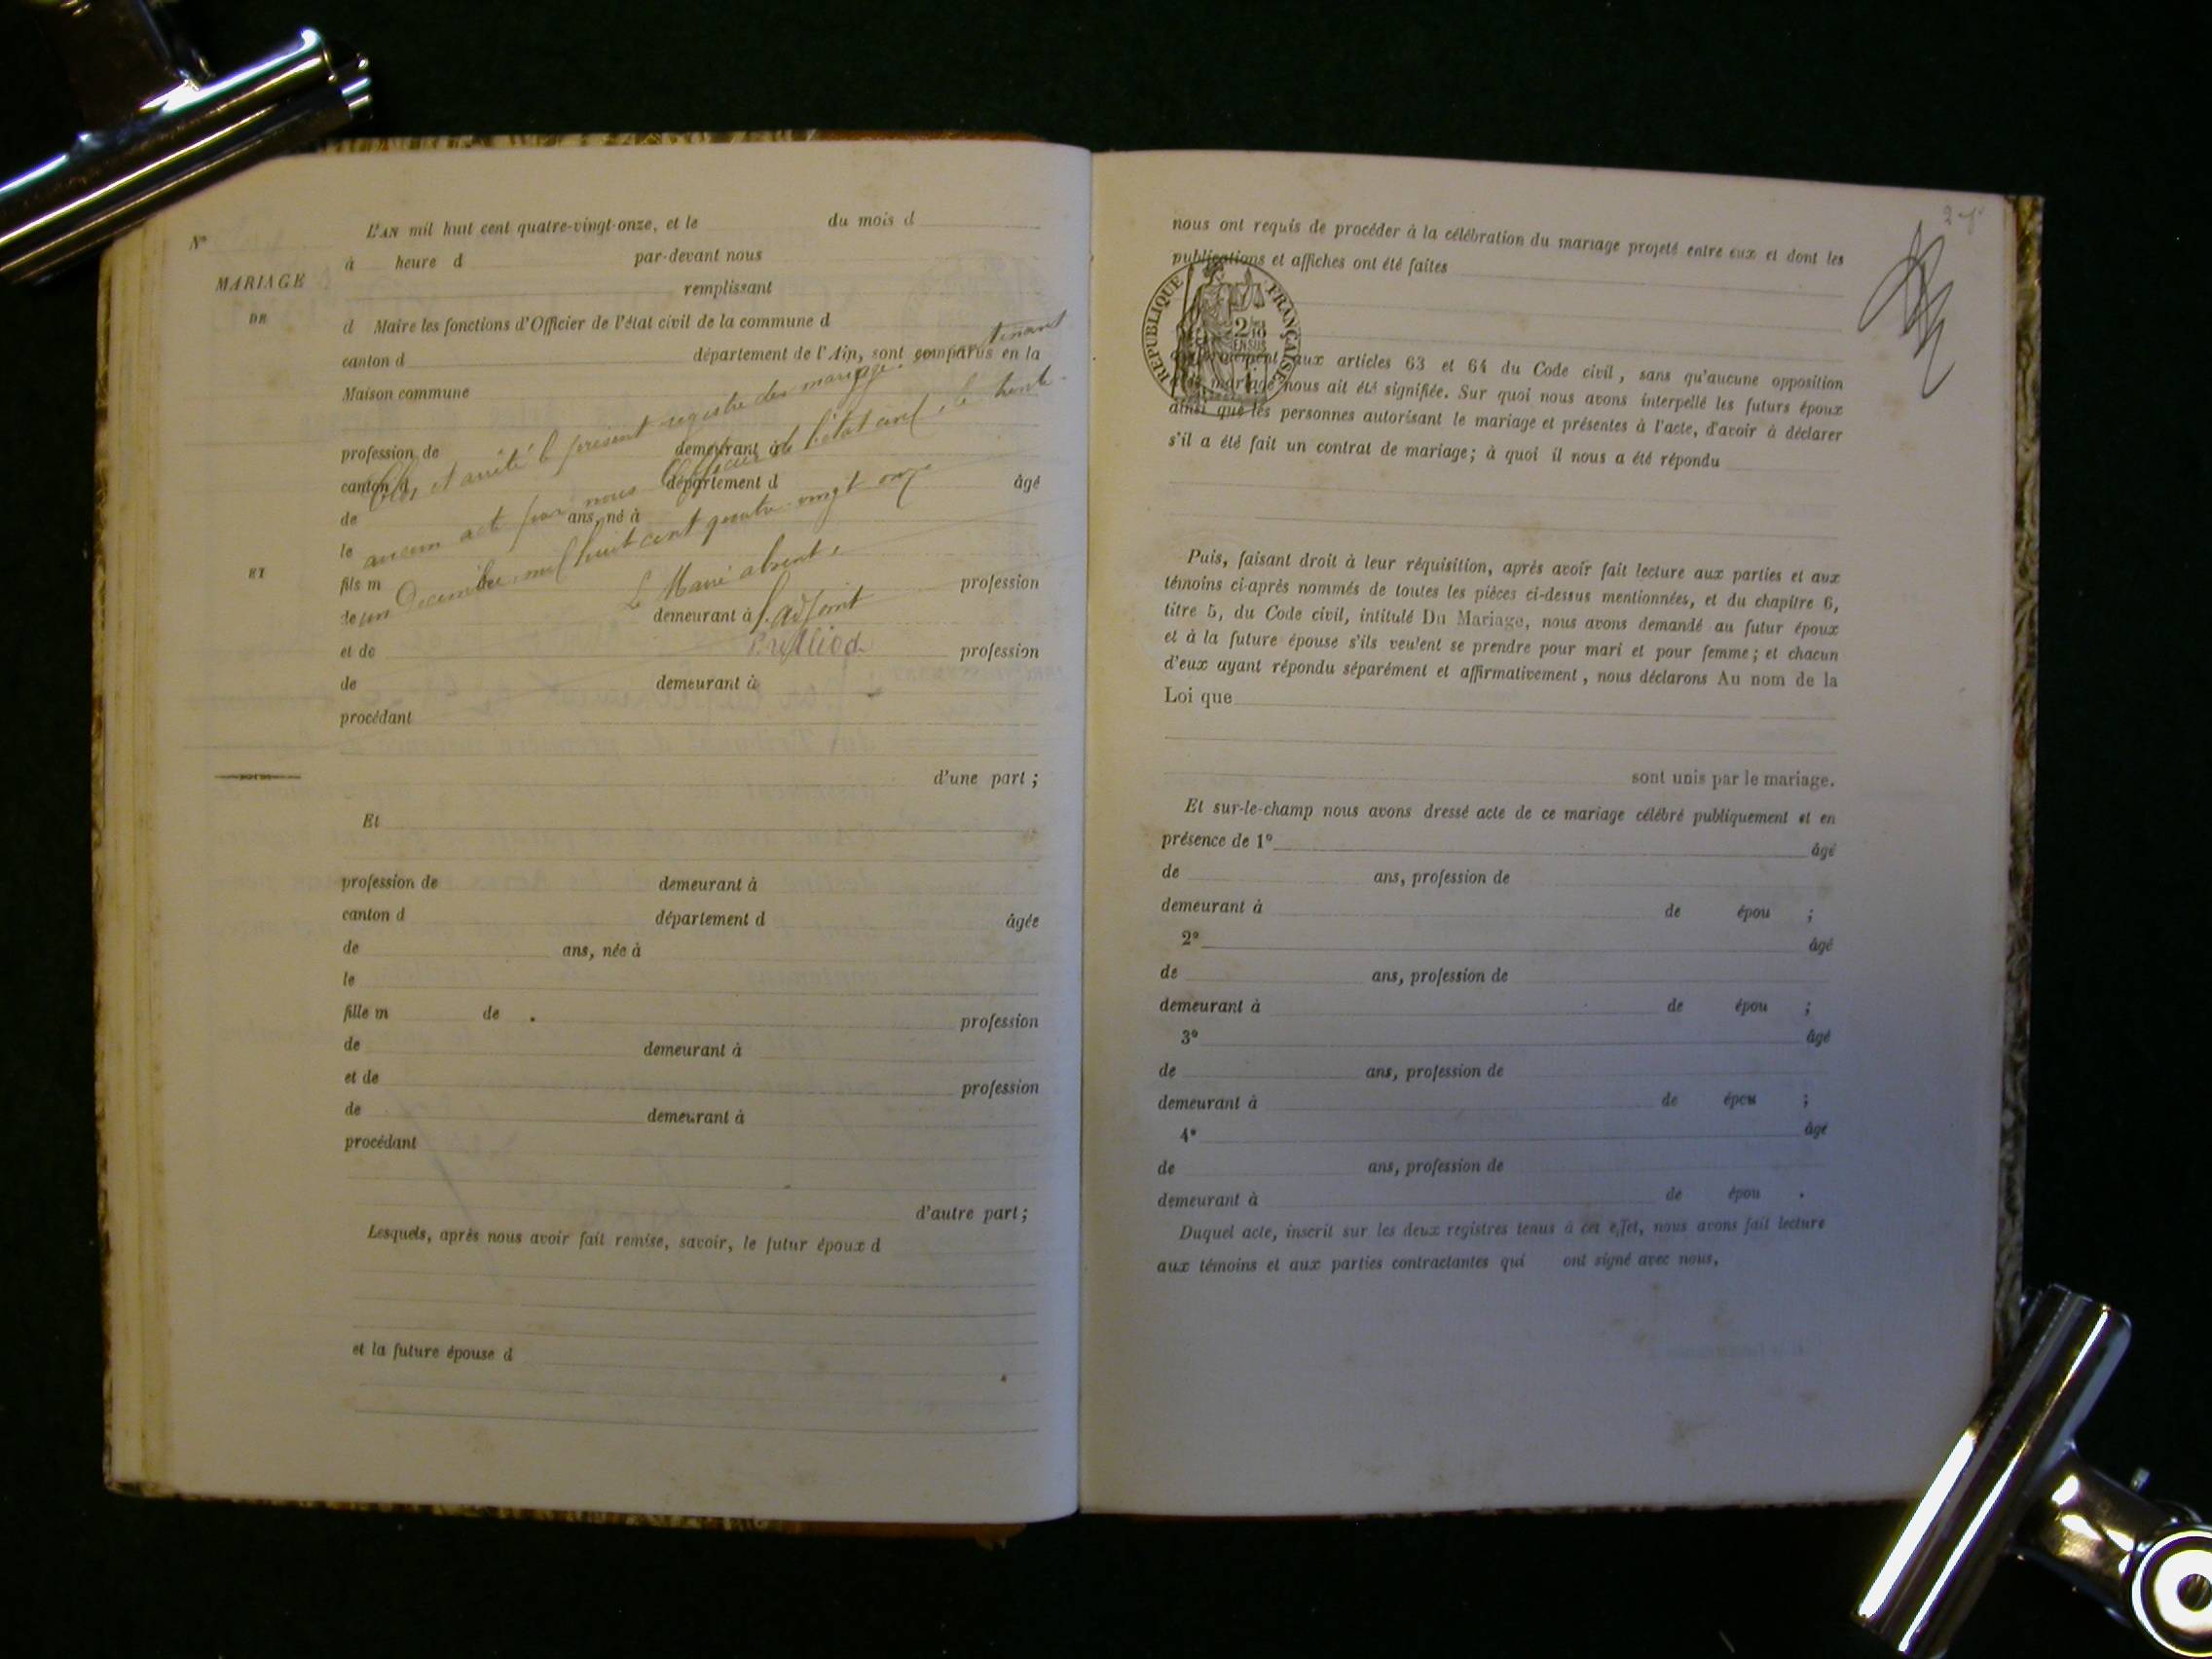 N°
MARIAGE
DE
ET
L'AN mil huit cent quatre-vingt-onze, et le du mois d
à heure d par-devant nous
remplissant
d Maire les fonctions d'Officier de l'état civil de la commune d
canton d département de l'Ain, sont comparus en la
Maison commune
profession de demeurant à
canton d département d âgé
de ans, né à
le
fils m profession
de demeurant à
et de profession
de demeurant à
procédant
d'une part ;
Clos et arrêté le présent registre des mariages ne contenant
aucun acte par nous Officier de l'état civil, le trente
un Décembre mil huit cent quatre-vingt onze
Le Maire absent,
L'adjoint
Et
profession de demeurant à
canton d département d âgée
de ans, née à
le
fille m de profession
de demeurant à
et de profession
de demeurant à
procédant
d'autre part ;
Lesquels, après nous avoir fait remise, savoir, le futur époux d
et la future épouse d
nous ont requis de procéder à la célébration du mariage projeté entre eux et dont les
publications et affiches ont été faites
RÉPUBLIQUE FRANÇAISE
conformément aux articles 63 et 64 du Code civil, sans qu'aucune opposition
mariage nous ait été signifiée. Sur quoi nous avons interpellé les futurs époux
ainsi que les personnes autorisant le mariage et présentes à l'acte, d'avoir à déclarer
s'il a été fait un contrat de mariage; à quoi il nous a été répondu
Puis, faisant droit à leur réquisition, après avoir fait lecture aux parties et aux
témoins ci-après nommés de toutes les pièces ci-dessus mentionnées, et du chapitre 6,
titre 5, du Code civil, intitulé Du Mariage, nous avons demandé au futur époux
et à la future épouse s'ils veulent se prendre pour mari et pour femme ; et chacun
d'eux ayant répondu séparément et affirmativement, nous déclarons Au nom de la
Loi que
sont unis par le mariage.
Et sur-le-champ nous avons dressé acte de ce mariage célébré publiquement et en
présence de 1° âgé
de ans, profession de
demeurant à de épou ;
2° âgé
de ans, profession de
demeurant à de épou ;
3° âgé
de ans, profession de
demeurant à de épou ;
4° âgé
de ans, profession de
demeurant à de épou .
Duquel acte, inscrit sur les deux registres tenus à cet effet, nous avons fait lecture
aux témoins et aux parties contractantes qui ont signé avec nous,